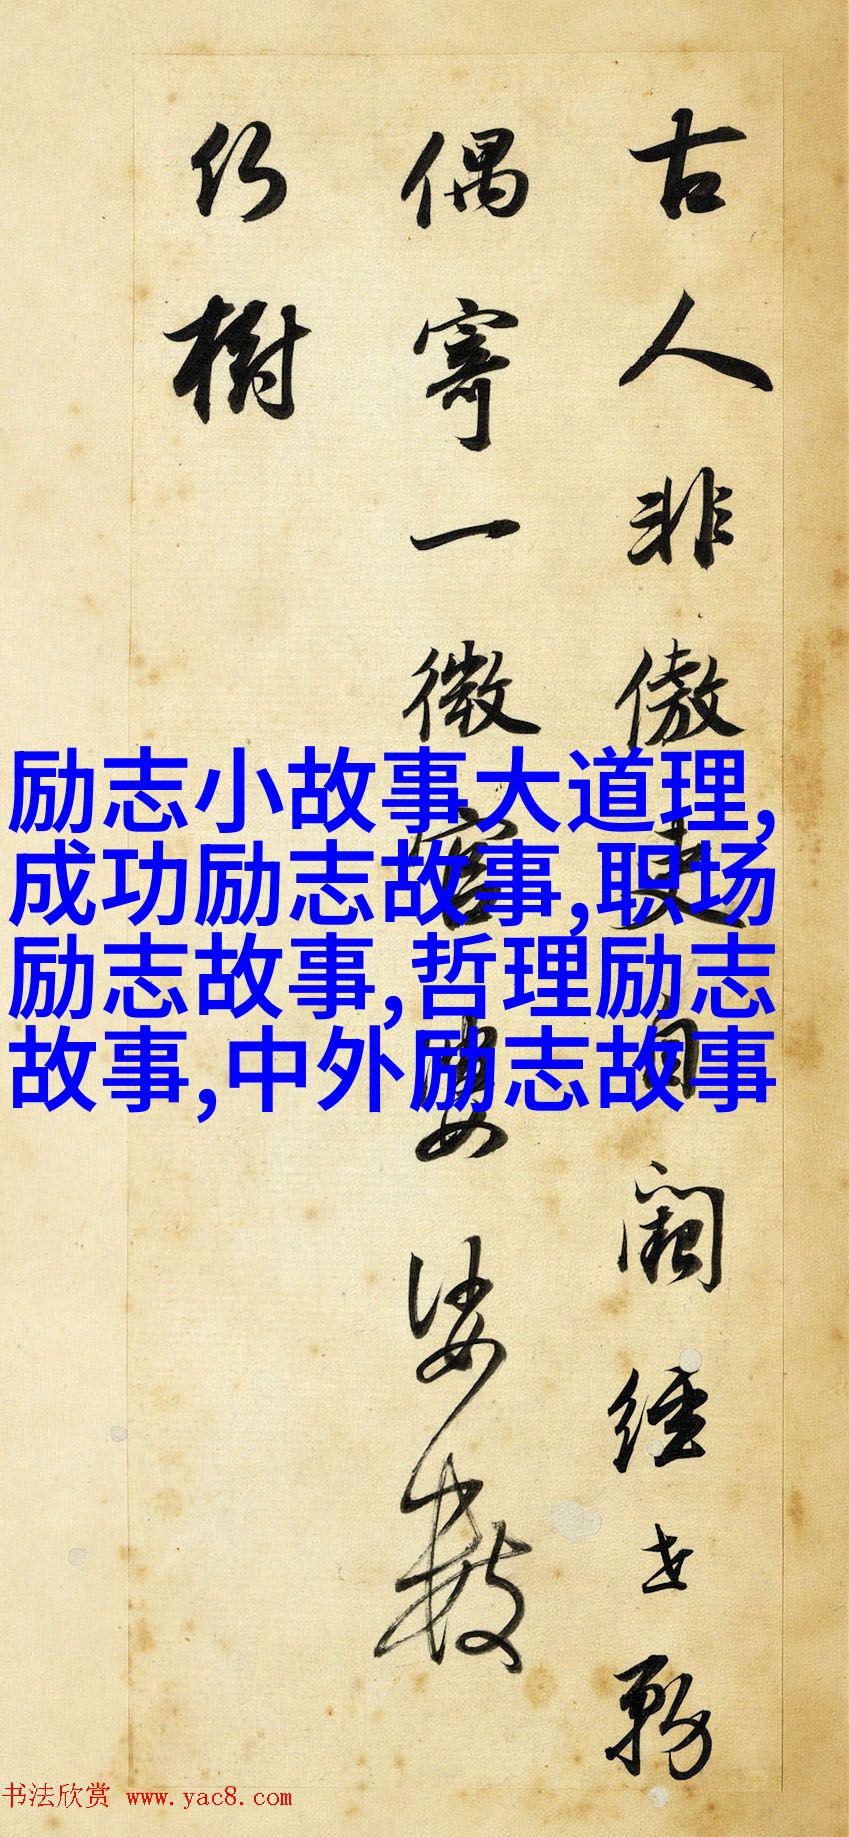 古人非傲吏自闕經世務
偶寄一微官婆娑數
樹
励志小故事大道理,
成功励志故事,职场
励志故事,哲理励志
故事,中外励志故事
书法欣赏 www.yac8.com